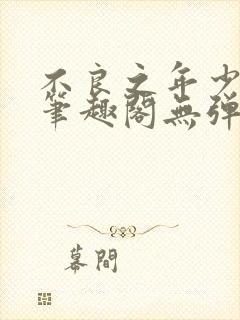 不良之年少
笔趣阁無弹
幕間